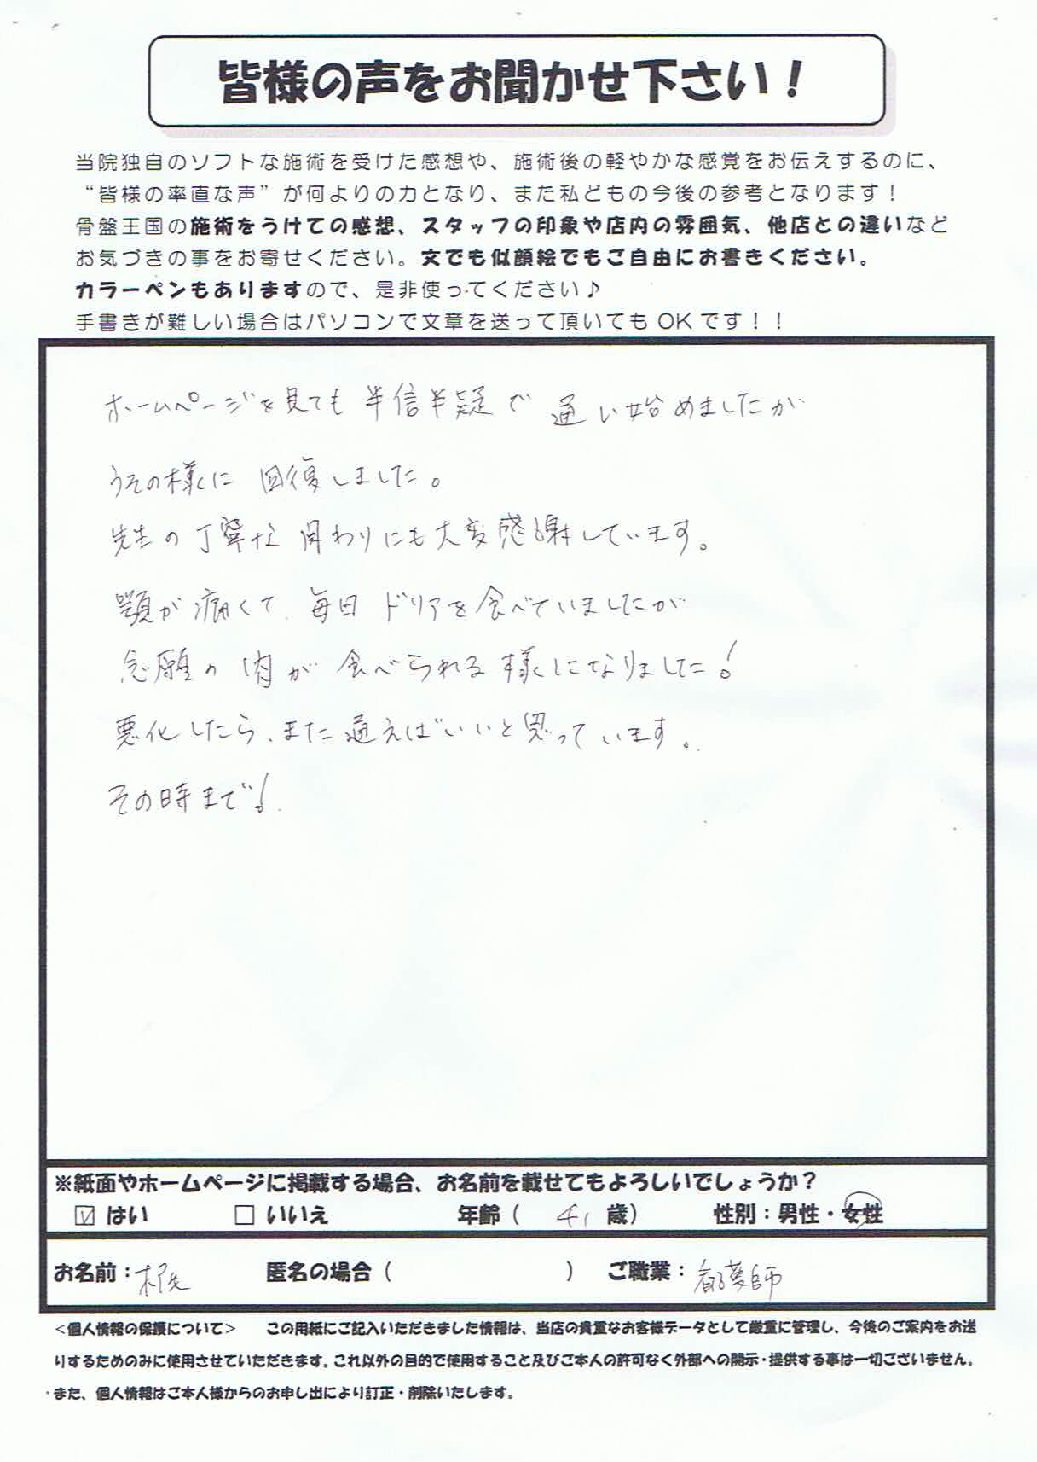 皆様の声をお聞かせ下さい！
当院独自のソフトな施術を受けた感想や、施術後の軽やかな感覚をお伝えするのに、
“皆様の率直な声”が何よりの力となり、また私どもの今後の参考となります！
骨盤王国の施術をうけての感想、スタッフの印象や店内の雰囲気、他店との違いなど
お気づきの事をお寄せください。文でも似顔絵でもご自由にお書きください。
カラーペンもありますので、是非使ってください♪
手書きが難しい場合はパソコンで文章を送って頂いてもOKです！！
ホームページを見ても半信半疑で通い始めましたが
うその様に回復しました。
先生の丁寧な関わりにも大変感謝しています。
顎が痛くて、毎日ドリアを食べていましたが
念願の肉が食べられる様になりました！
悪化したら、また通えばいいと思っています。
その時まで！
※紙面やホームページに掲載する場合、お名前を載せてもよろしいでしょうか？
☑はい □いいえ 年齢（ 41 歳） 性別：男性・女性
お名前： 匿名の場合（ ） ご職業：
＜個人情報の保護について＞ この用紙にご記入いただきました情報は、当店の貴重なお客様データとして厳重に管理し、今後のご案内をお送
りするためのみに使用させていただきます。これ以外の目的で使用すること及びご本人の許可なく外部への開示・提供する事は一切ございません。
・また、個人情報はご本人様からのお申し出により訂正・削除いたします。